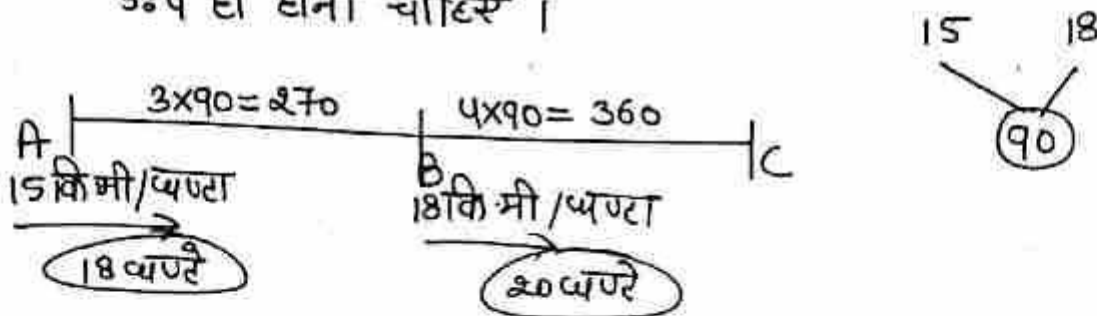 3:4 ही होना चाहिए।
15 18
90
3×90=270 4×90= 360
A B C
15 कि मी/घण्टा 18 कि.मी/घण्टा
18 घण्टे 20 घण्टे